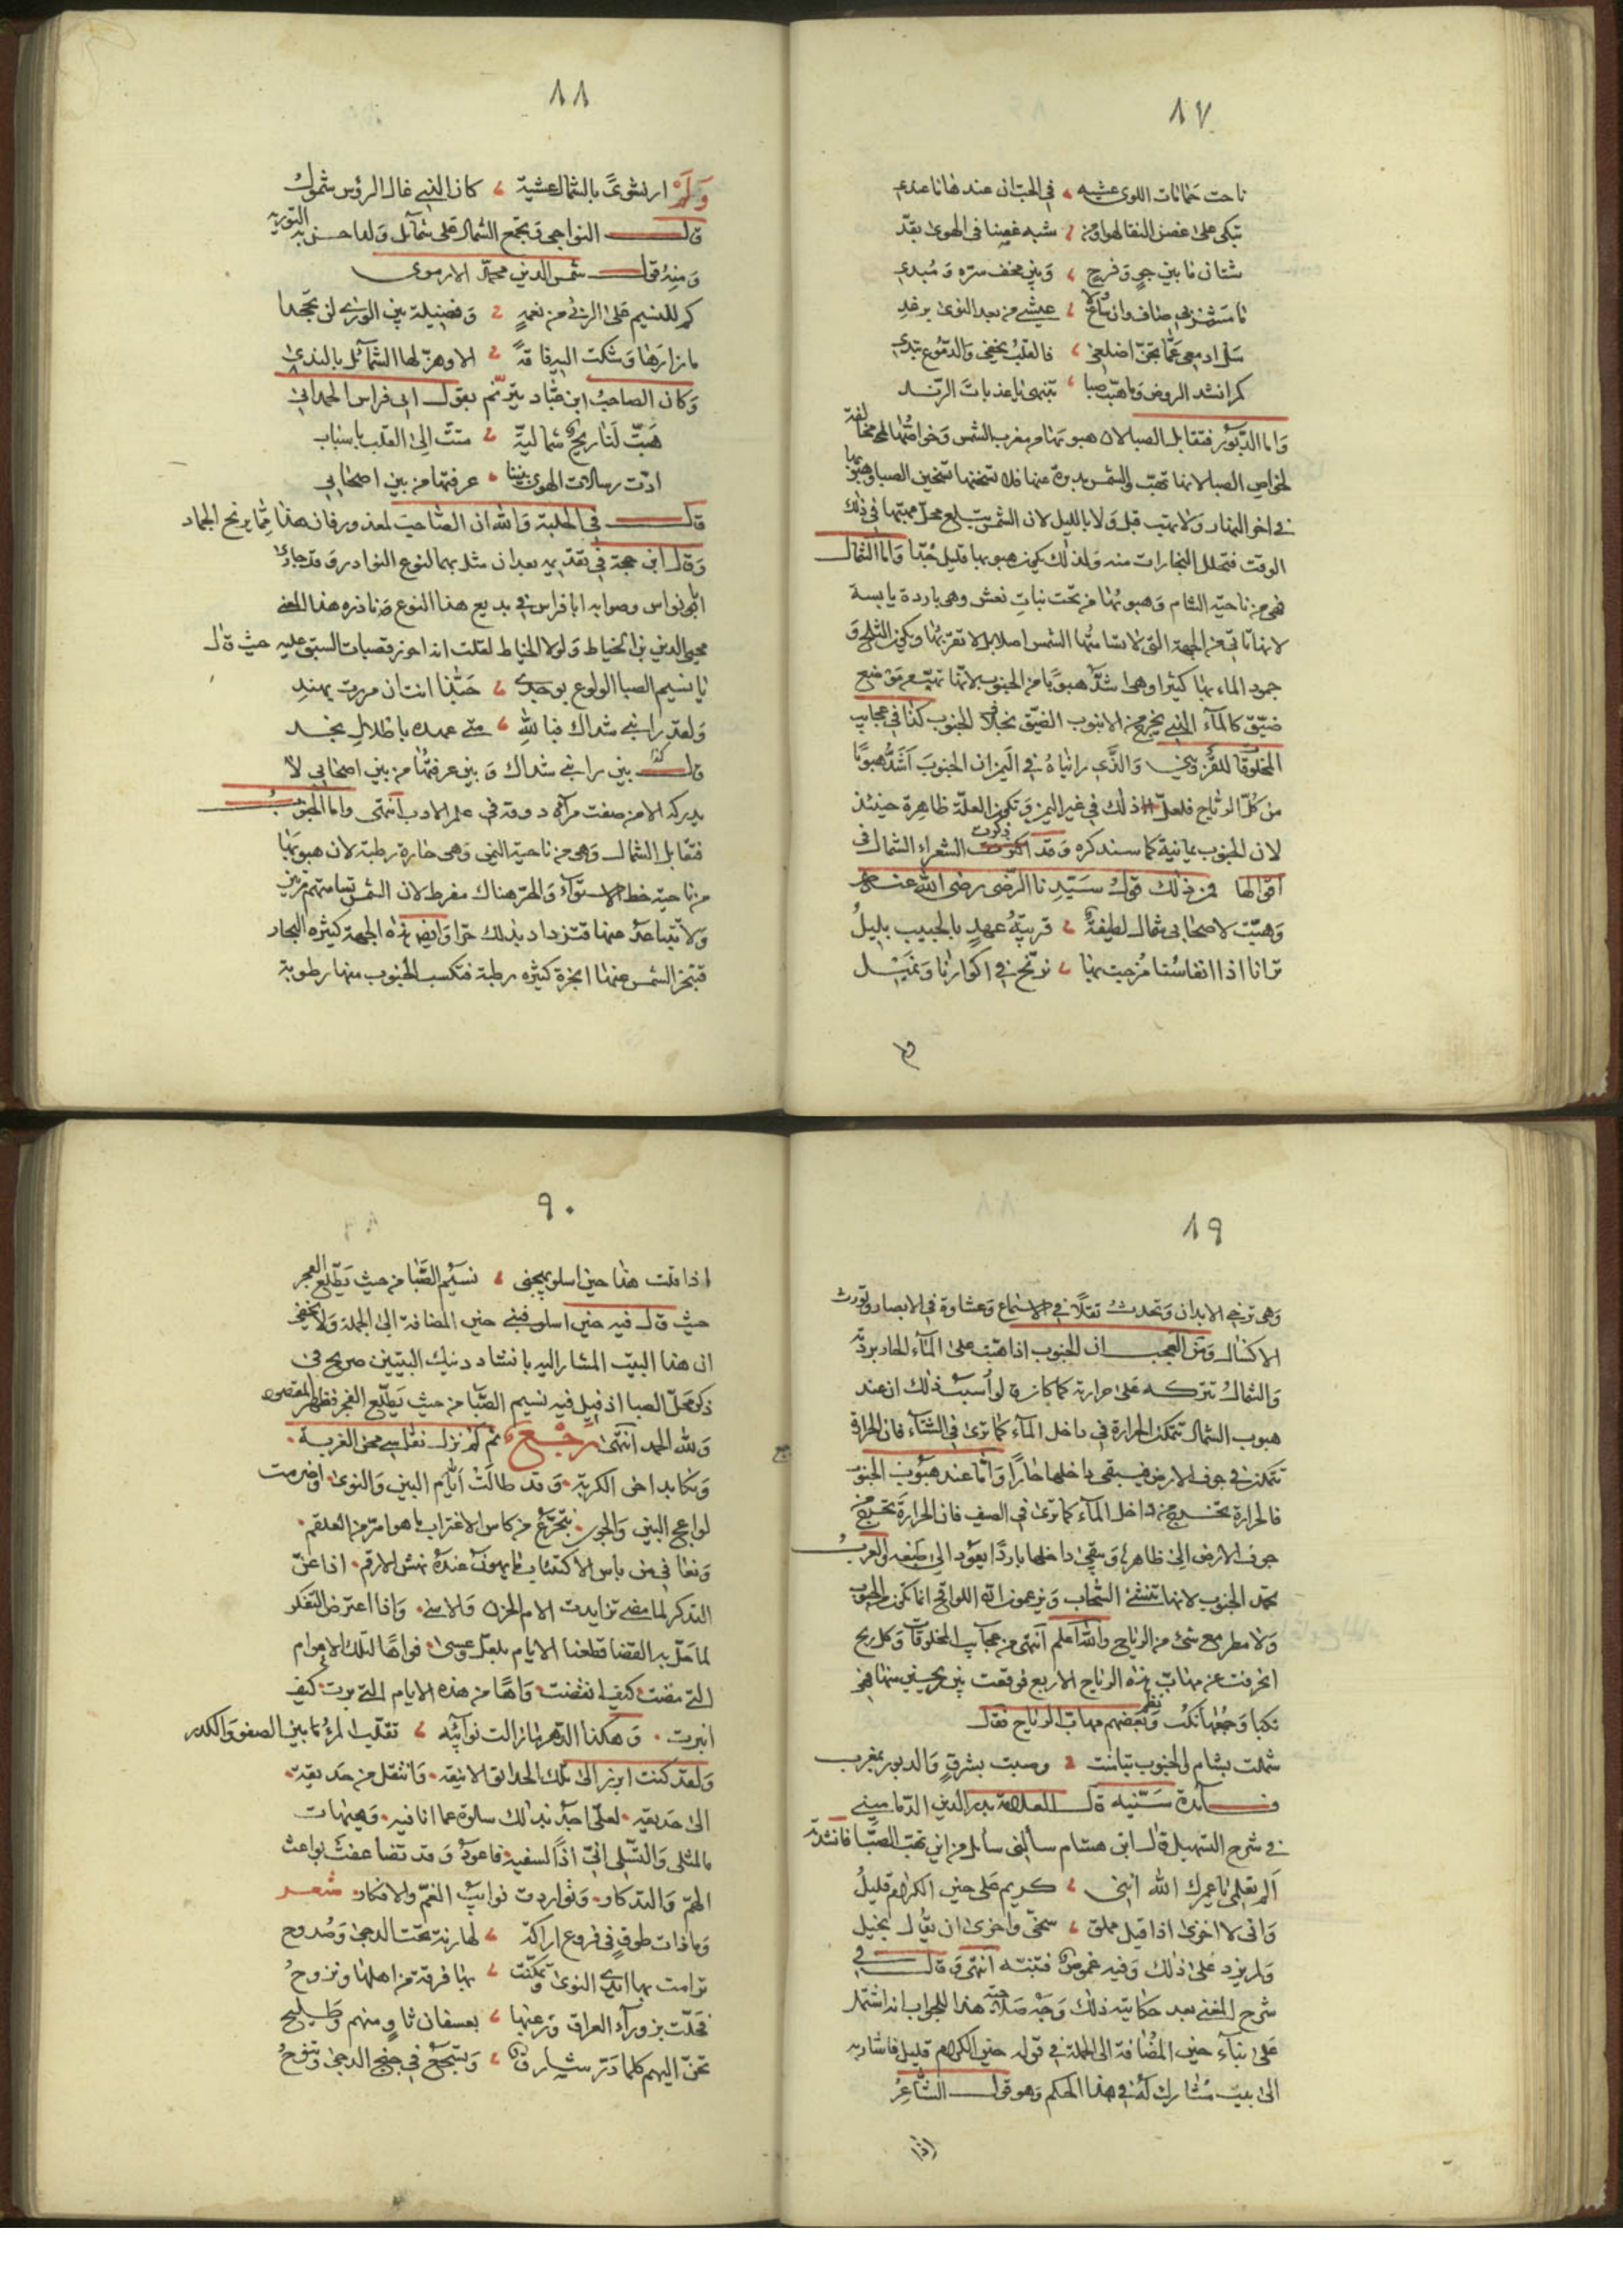 ٨٧
ناحت حمامات اللوى عشيه ، في الحب ان عند هانا عندي
تبكى على غصن النقا لهوا ومن ، شبه غصنا فى الهوى بقدّ
شتان ما بين جوٍ وفرح ، وبين مخف سره ومبدي
ما مشربى صاف وان ساغ ولا ، عيشى من بعد النوى برغد
سل ادمعى عما تجنّ اضلعى ، فالقلب يخفى والدموع تبدي
كم انشد الروض وما هبت صبا ، تبنهى يا عذبات الرند
واما الدبور فتقابل الصبا لان هبوبها من مغرب الشمس وخواصها مخالفة
لخواص الصبا لانها تهب والشمس مدبرة عنها فلا تسخنها تسخين الصبا وهبوبها
في اخر النهار ولا تهب قبل ولا بالليل لان الشمس تبلغ محل مهبها في ذلك
الوقت فتحلل البخارات منه ولذلك يكون هبوبها قليل جدا واما الشمال
فهى من ناحية الشام وهبوبها من تحت نبات نعش وهى باردة يابسة
لانها تاتى من الجهة التى لا تسامتها الشمس اصلا بل لا تقربها ويكون الثلج و
جمود الماء بها كثيرا وهى اشد هبوبا من الجنوب لانها تهب من موضع
ضيّق كالماء الذي يخرج من الانبوب الضيق بخلاف الجنوب كذا في عجايب
المخلوقات للقزويني والذي رايناه في اليمن ان الجنوب اشد هبوبا
من كل الرياح فلعل ذلك في غير اليمن وتكون العلة ظاهرة حينئذ
لان الجنوب يمانية كما سنذكره وقد اكثرت ذكرت الشعراء الشمال في
اقوالها فمن ذلك قول سيدنا الرضى رضى الله عنه
وهبّت لاصحابى شمال لطيفة ، قريبة عهدٍ بالحبيب بليلُ
ترانا اذا انفاسنا مزجت بها ، نرنح في اكوارنا ونميل
٨٨
وَلَمْ ار نشوىً بالشمال عشية ، كان الذي غال الرؤس شمولُ
قال النواجى وتجمع الشمال على شمآئل ولما حسن به التورية
ومنه قول شمس الدين محمد الارموى
كم للنسيم على الربى من نعمةٍ ، وفضيلة بين الورى لن تجحدا
ما زارها وشكت اليه فاقة ، الا وهزّ لها الشمآئل بالندى
وكان الصاحب ابن عبّاد يترنم بقول ابى فراس الحمدانى
هَبّت لنا ريحٌ شمالية ، متت الى القلب باسباب
ادّت رسالات الهوى بيننا ، عرفتها من بين اصحابى
قال في الحلبة والله ان الصاحب لمعذور فان هذا مما يرنح الجماد
وقال ابن حجة في تقديم بعد ان مثل بهما لنوع النوادر وقد جارى
ابى نواس وصوابه ابا فراس في بديع هذا النوع ونادره هذا المعنى
محيى الدين بن الخياط ولولا الخياط لقلت انه احرز قصبات السبق عليه حيث قال
يا نسيم الصبا الولوع بوجدى ، حبّذا انت ان مررت بهندِ
ولقد رابنى شذاك فبالله ، متى عهده باطلال نجد
قلت كم بين رابنى شذاك وبين عرفتها من بين اصحابى لا
يدركه الا من صفت مرآة ذوقه في علم الادب انتهى واما الجنوب
فتقابل الشمال وهى من ناحية اليمن وهى حارة رطبة لان هبوبها
من ناحية خط الاستوآء والحر هناك مفرط لان الشمس تسامتهم مرتين
ولا تتباعد عنها فتزداد بذلك حرا وايضا هذه الجهة كثيره البحار
فتبخر الشمس عنها ابخرة كثيره رطبة فتكسب الجنوب منها رطوبة
٨٩
وهى ترخى الابدان وتحدث ثقلاً في الاسماع وغشاوة في الابصار وتورث
الاكسال ومن العجب ان الجنوب اذا هبت على المآء الحار بردته
والشمال تتركه على حرارته كما كان قالوا سبب ذلك ان عند
هبوب الشمال تتمكن الحرارة في داخل المآء كما ترى في الشتآء فان الحرارة
تتمكن في جوف الارض فيبقى داخلها حارًا واما عند هبوب الجنوب
فالحرارة تخرج من داخل المآء كما ترى في الصيف فان الحرارة تخرج من
جوف الارض الى ظاهرها ويبقى داخلها باردًا يعود الى طبعه والعرب
تحمد الجنوب لانها تنشئ السحاب ويزعمون انه اللواقح انما تكون الجنوب
ولا مطر مع شئ من الرياح والله اعلم انتهى من عجآيب المخلوقات وكل ريح
انحرفت عن مهاب هذه الرياح الاربع فوقعت بين ريحين منها فهى
نكبا وجمعها نكب ونظم بعضهم مهاب الرياح فقال
شملت بشام والجنوب تيامنت ، وصبت بشرقٍ والدبور بمغرب
فــآئدة سَنيه قال العلامة بدر الدين الدمامينى
في شرح التسهيل قال ابن هشام سألنى سآئل من اين تهب الصبا فانشدته
ألم تعلمى يا عمرك الله انني ، كريم على حين الكرام قليلُ
وانى لا اخزى اذا قيل مملق ، سخىّ واخزى ان يقال بخيل
ولم يزد على ذلك وفيه غموض فتنبه انتهى وقال في
شرح المغنى بعد حكايته ذلك وجه صلاحية هذا للجواب انه اشتمل
على بنآء حين المضافة الى الجملة في قوله حين الكرام قليل فاشار به
الى بيت مشارك له في هذا الحكم وهو قول الشاعرُ
اذا
٩٠
اذا قلت هذا حين اسلو يهيجنى ، نسيم الصبا من حيث يطّلع الفجر
حيث قال فيه حين اسلو فبنى حين المضافة الى الجملة ولا يخفى
ان هذا البيت المشار اليه بانشاد ذينك البيتين صريح في
ذكر محل الصبا اذ قيل فيه نسيم الصبا من حيث يطّلع الفجر فظهر المقصود
ولله الحمد انتهى رَجْع ثم لم نزل نقاسى محن الغربة
ونكابد اخى الكربة وقد طالت ايام البين والنوى واضرمت
لواعج البين والجوى نتجرّع من كاس الاغتراب ما هو امرّ من العلقم
ونعانى من باس الاكتئاب ما يهون عنده نهش الارقم اذا عنّ
التذكر لما مضى تزايدت الام الحزن والاسى واذا اعترض التفكر
لما حلّ به القضا قطعنا الايام بلعلّ وعسى فواهًا لتلك الاعوام
التى مضت كيف انقضت وآهًا من هذه الايام التى برت كيف
انبرت وهكذا الدهر ما زالت نوآئبه ، تقلّب المرء ما بين الصفو والكدر
ولقد كنت ابرز الى تلك الحدائق الانيقه وانتقل من حديقة
الى حديقة لعلّى اجد بذلك سلوة عما انا فيه وهيهات
بالمثلى والتسلّى انى اذًا لسفيه فاعود وقد تضاعفت بواعث
الهمّ والتذكار وتواردت نوايب الغم والافكار شعـر
وما ذات طوقٍ في فروع اراكة ، لها رنة تحت الدجى وصدوح
ترامت بها ايدى النوى وتمكنت ، بها فرقة من اهلها ونزوحُ
فحلّت بزورآء العراق وزغبها ، بعسفان ثاوٍ منهم وطليح
تحنّ اليهم كلما ذر شارق ، وتسجع في جنح الدجى وتنوحُ